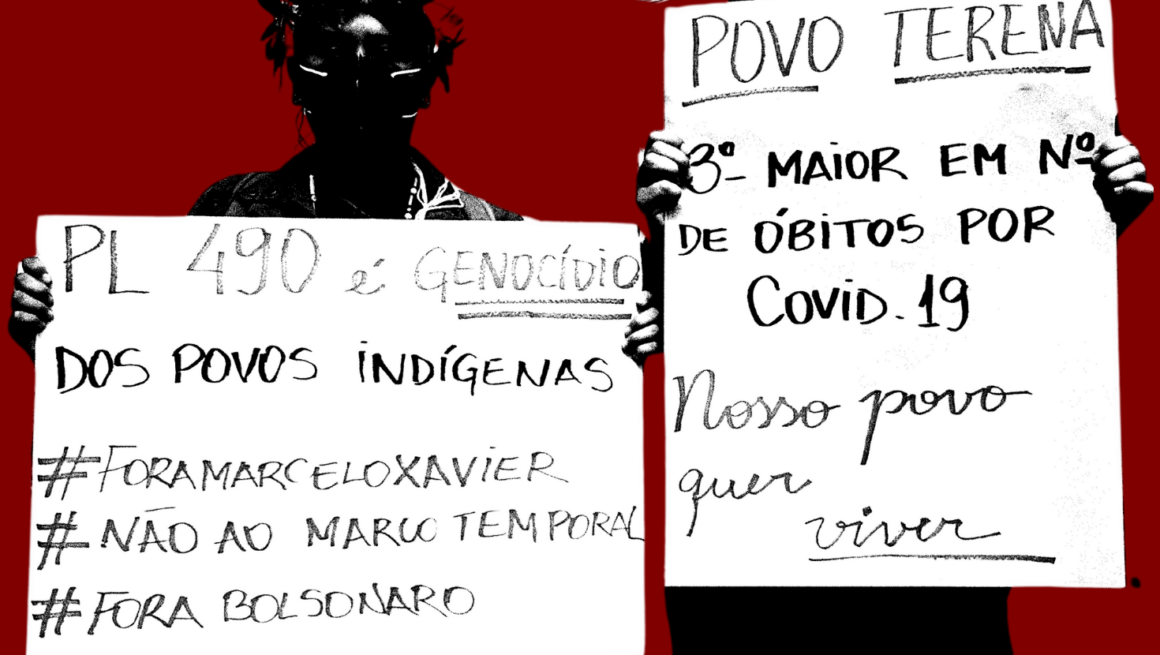 PL 490 é GENOCÍDIO
DOS POVOS INDÍGENAS
#FORAMARCELOXAVIER
#NÃO AO MARCO TEMPORAL
#FORA BOLSONARO
POVO TERENA
3º MAIOR EM Nº
DE ÓBITOS POR
COVID.19
Nosso povo
quer
viver